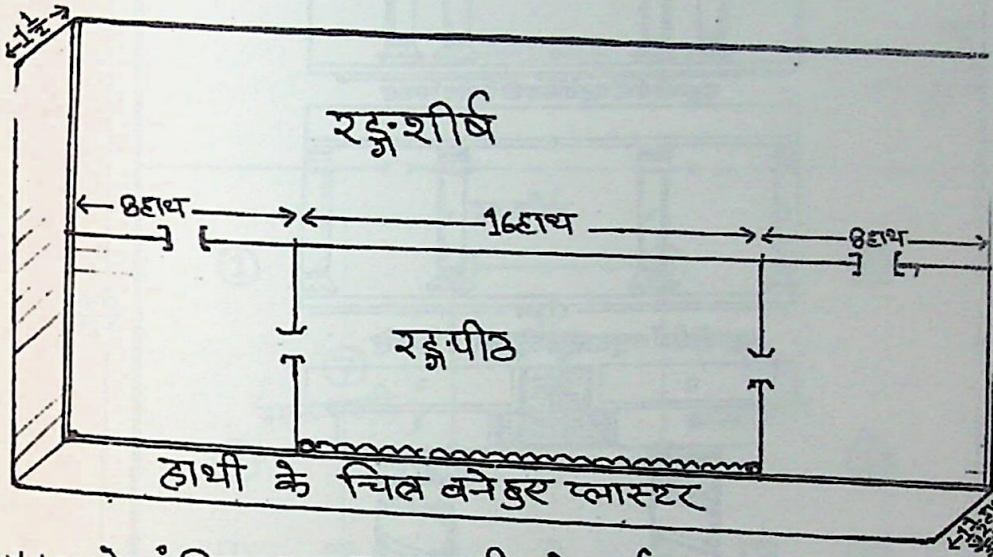 1½
रङ्गशीर्ष
8हाथ 16हाथ 8हाथ
रङ्गपीठ
हाथी के चित्र बने हुए प्लास्टर
1½